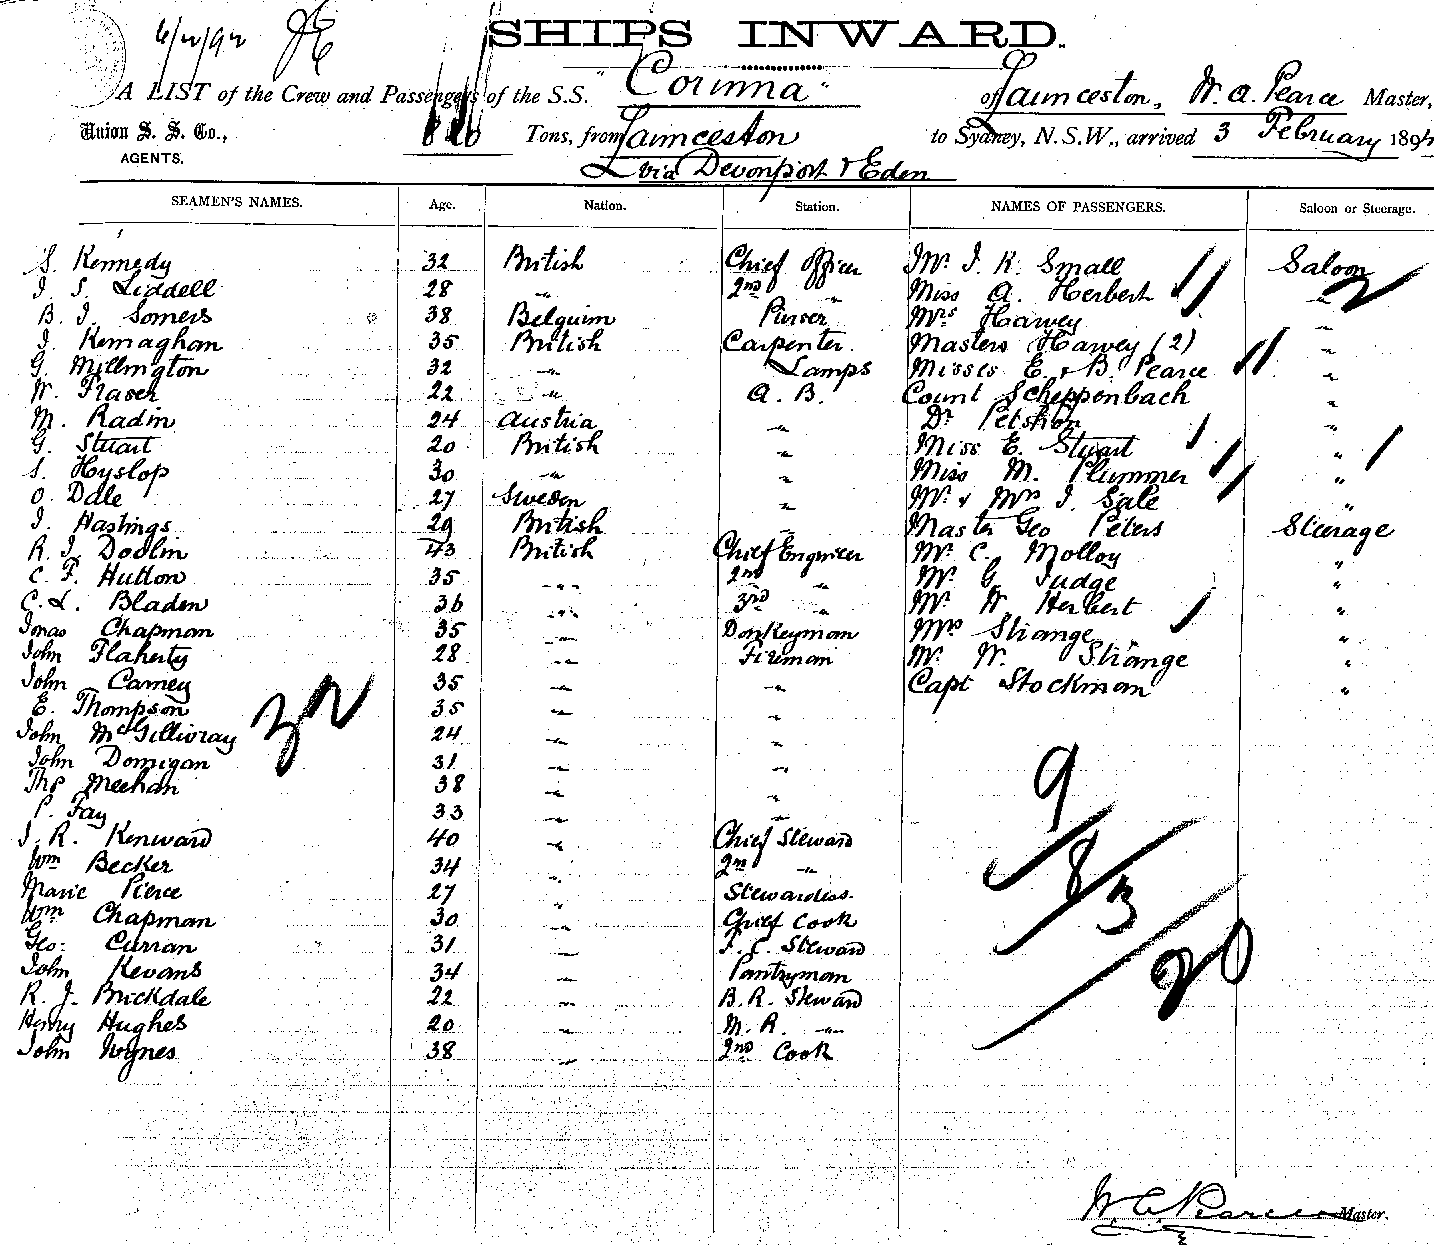 6/2/92
SHIPS INWARD.
A LIST of the Crew and Passengers of the S.S. "Corinna" of Launceston, W. A. Pearce Master,
Union S. S. Co., 820 Tons, from Launceston to Sydney, N.S.W., arrived 3 February 189
AGENTS.
via Devonport & Eden
SEAMEN'S NAMES. Age. Nation. Station. NAMES OF PASSENGERS. Saloon or Steerage.
S. Kennedy 32 British Chief Officer Mr. J. K. Small Saloon
J. S. Liddell 28 " 2nd " Miss A. Herbert "
B. J. Somers 38 Belguim Purser Mrs Harvey "
J. Kernaghan 35 British Carpenter. Masters Harvey (2) "
G. Millington 32 " Lamps Misses E. & B. Pearce "
W. Fraser 22 " A. B. Count Scheppenbach "
M. Radin 24 Austria " Dr "
G. Stuart 20 British " Miss E. Stuart "
S. Hyslop 30 " " Miss M. Plummer "
O. Dale 27 Sweden " Mr. & Mrs J. Sale "
J. Hastings 29 British " Master Geo Peters Steerage
R. J. Doolin 43 British Chief Engineer Mr. C. Molloy "
C. F. Hutton 35 " 2nd " Mr. G. Judge "
C. L. Bladen 36 " 3rd " Mr. W. Herbert "
Jonas Chapman 35 " Donkeyman Mrs Strange "
John Flaherty 28 " Fireman Mr. W. Strange "
John Carney 35 " " Capt Stockman "
E. Thompson 35 " "
John McGillivray 24 " "
32
John Dornigan 31 " "
Thos Meehan 38 " "
P. Fay 33 " "
J. R. Kenward 40 " Chief Steward
Wm Becker 34 " 2nd "
Marie Pierce 27 " Stewardess.
Wm Chapman 30 " Chief Cook
Geo: Curran 31 " F. C. Steward
John Kevans 34 " Pantryman
R. J. Brickdale 22 " B. R. Steward
Henry Hughes 20 " M. R. "
John Wynes 38 " 2nd Cook
9/8/3/20
W. A. Pearce Master.